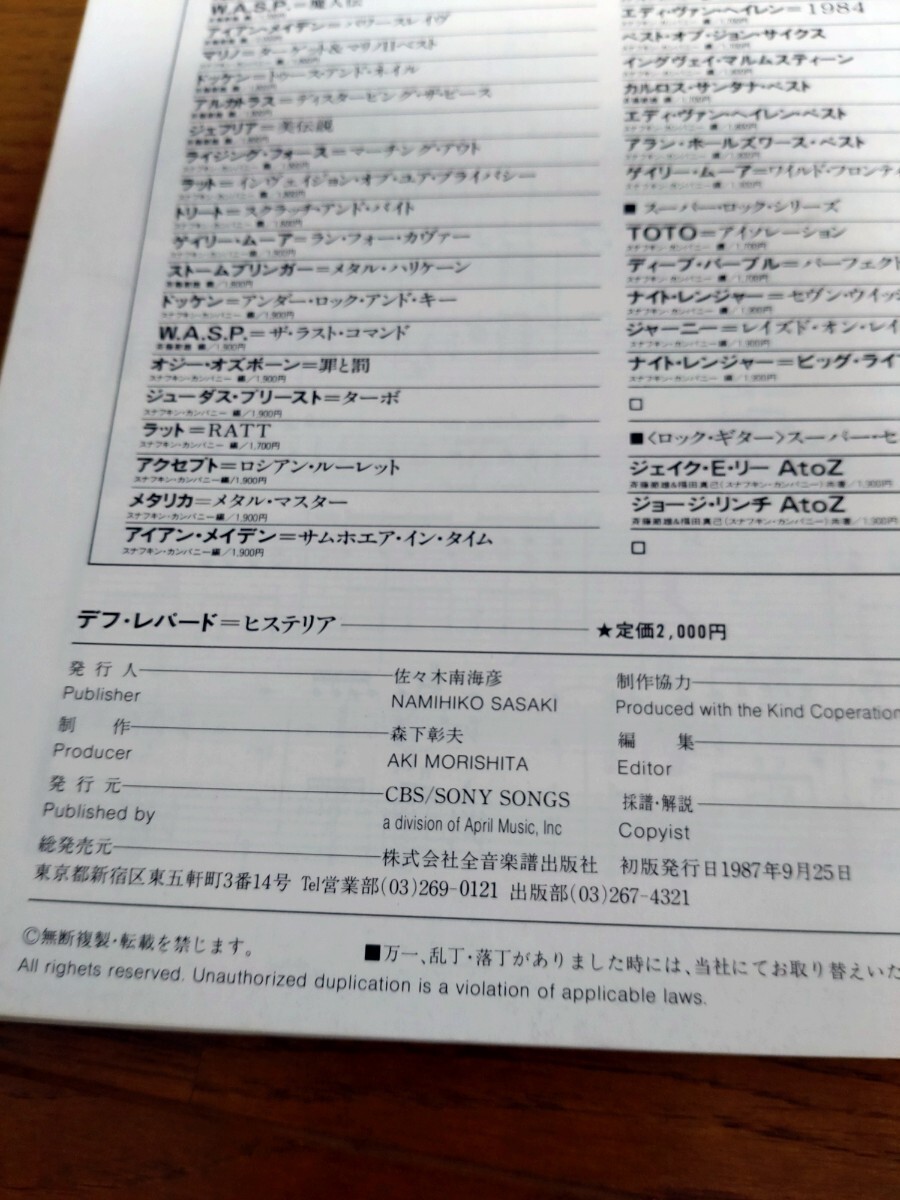 W.A.S.P.＝魔人伝
アイアン・メイデン＝パワースレイヴ
マリノ＝ターゲット&マリノIIベスト
ドッケン＝トゥース・アンド・ネイル
アルカトラス＝ディスタービング・ザ・ピース
ジェフリア＝美伝説
ライジング・フォース＝マーチング・アウト
スナフキン・カンパニー 編／1,800円
ラット＝インヴェイジョン・オブ・ユア・プライバシー
スナフキン・カンパニー 編／1,800円
トリート＝スクラッチ・アンド・バイト
スナフキン・カンパニー 編／1,800円
ゲイリー・ムーア＝ラン・フォー・カヴァー
スナフキン・カンパニー 編／1,800円
ストームブリンガー＝メタル・ハリケーン
ドッケン＝アンダー・ロック・アンド・キー
スナフキン・カンパニー 編／1,900円
W.A.S.P.＝ザ・ラスト・コマンド
オジー・オズボーン＝罪と罰
スナフキン・カンパニー 編／1,900円
ジューダス・プリースト＝ターボ
スナフキン・カンパニー 編／1,900円
ラット＝RATT
スナフキン・カンパニー 編／1,700円
アクセプト＝ロシアン・ルーレット
スナフキン・カンパニー編／1,900円
メタリカ＝メタル・マスター
スナフキン・カンパニー編／1,900円
アイアン・メイデン＝サムホエア・イン・タイム
スナフキン・カンパニー編／1,900円
エディ・ヴァン・ヘイレン＝1984
ベスト・オブ・ジョン・サイクス
イングヴェイ・マルムスティーン
カルロス・サンタナ・ベスト
エディ・ヴァン・ヘイレン・ベスト
アラン・ホールズワース・ベスト
ゲイリー・ムーア＝ワイルド・フロンティ
■ スーパー・ロック・シリーズ
TOTO＝アイソレーション
ディープ・パープル＝パーフェクト
ナイト・レンジャー＝セヴン・ウイッ
ジャーニー＝レイズド・オン・レイ
ナイト・レンジャー＝ビッグ・ライ
□
■〈ロック・ギター〉スーパー・セ
ジェイク・E・リー AtoZ
ジョージ・リンチ AtoZ
□
デフ・レパード＝ヒステリア ★定価2,000円
発行人 佐々木南海彦
Publisher NAMIHIKO SASAKI
制作 森下彰夫
Producer AKI MORISHITA
発行元 CBS/SONY SONGS
Published by a division of April Music, Inc
制作協力
Produced with the Kind Coperation
編集
Editor
採譜・解説
Copyist
総発売元 株式会社全音楽譜出版社 初版発行日1987年9月25日
東京都新宿区東五軒町3番14号 Tel営業部(03)269-0121 出版部(03)267-4321
©無断複製・転載を禁じます。 ■万一、乱丁・落丁がありました時には、当社にてお取り替えいた
All righets reserved. Unauthorized duplication is a violation of applicable laws.